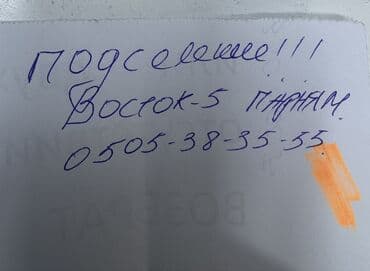 Подселение!!!
Восток-5 парням.
0505-38-35-55